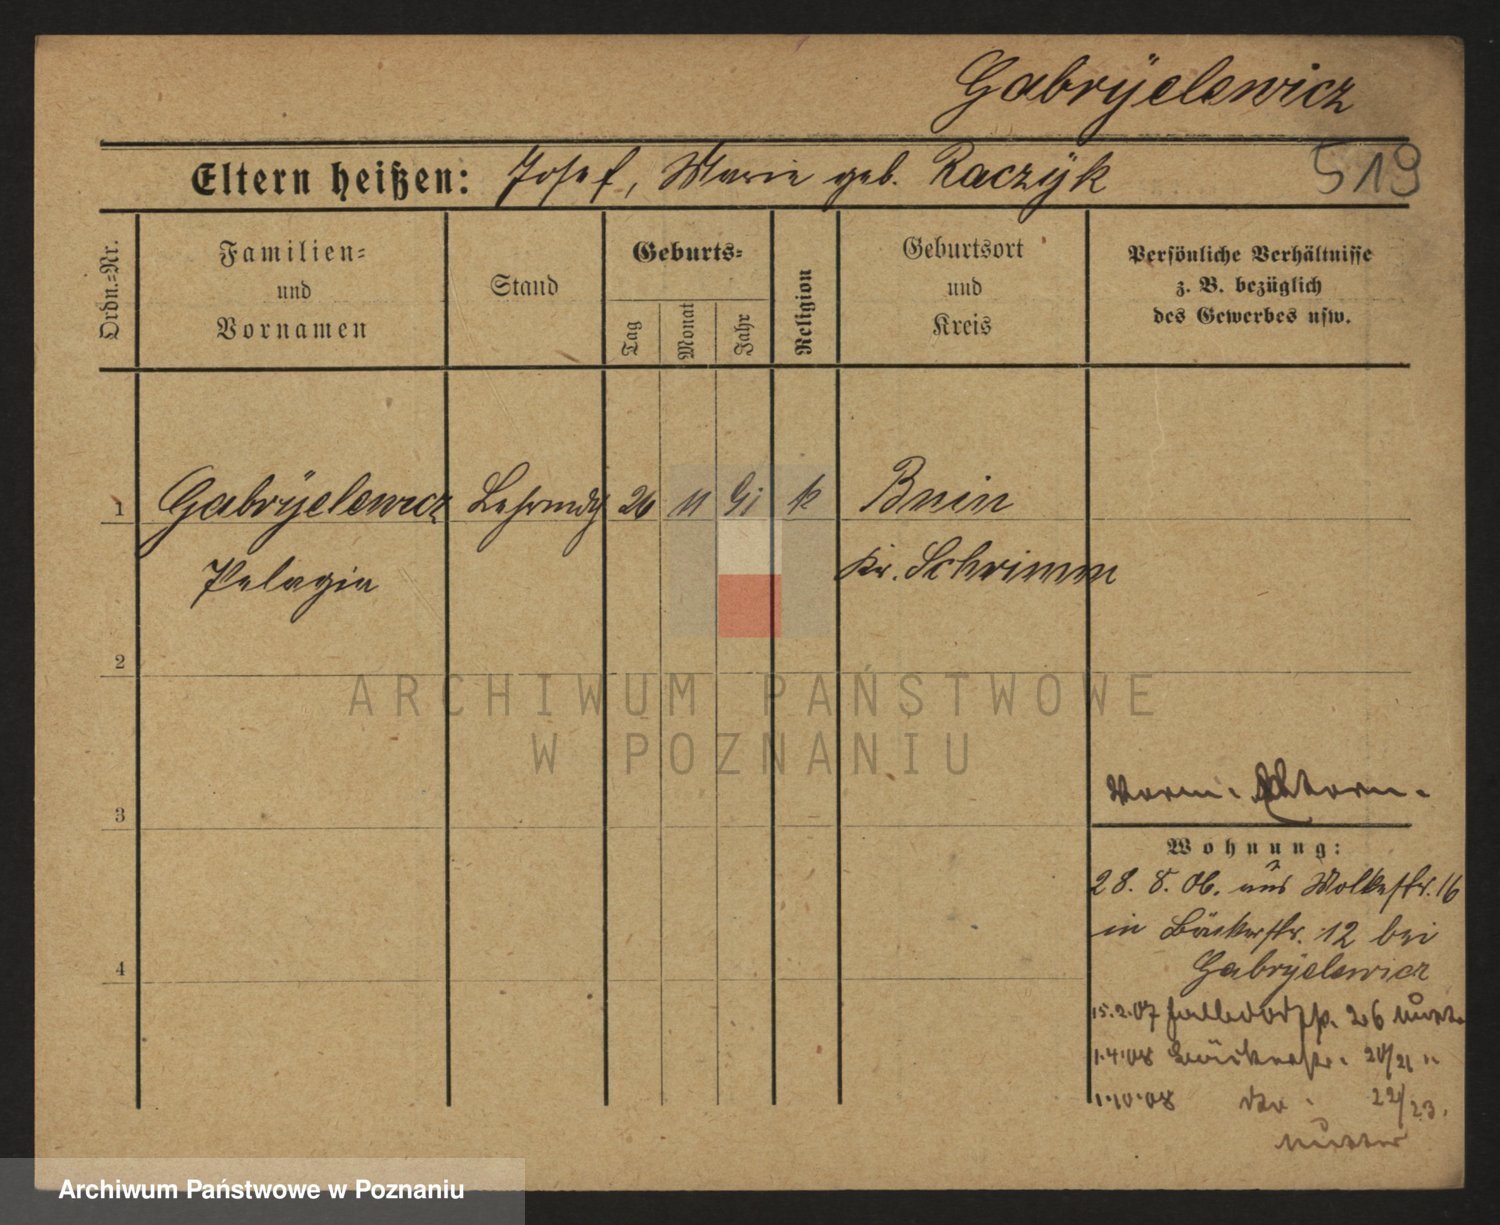 Gabryelewicz
Eltern heißen: Josef, Marie geb. Raczyk
519
Ordn.-Nr.
Familien-
und
Vornamen
Stand
Geburts-
Tag
Monat
Jahr
Religion
Geburtsort
und
Kreis
Persönliche Verhältnisse
z. B. bezüglich
des Gewerbes usw.
1
Gabryelewicz
Lehrmdch
26
11
k
Bnin
Pelagia
Kr. Schrimm
2
ARCHIWUM PAŃSTWOWE
W POZNANIU
3
Wohnung:
28. 8. 06. aus Moltkestr. 16
in Bäckerstr. 12 bei
Gabryelewicz
4
15.2.07 26 Mutter
1.4.08 Bäckerstr. 20/21 "
1.10.08 22/23.
Mutter
Archiwum Państwowe w Poznaniu